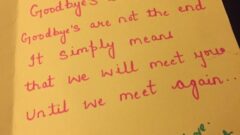 Goodbye's
Goodbye's are not the end
It simply means
that we will meet you
Until we meet again...